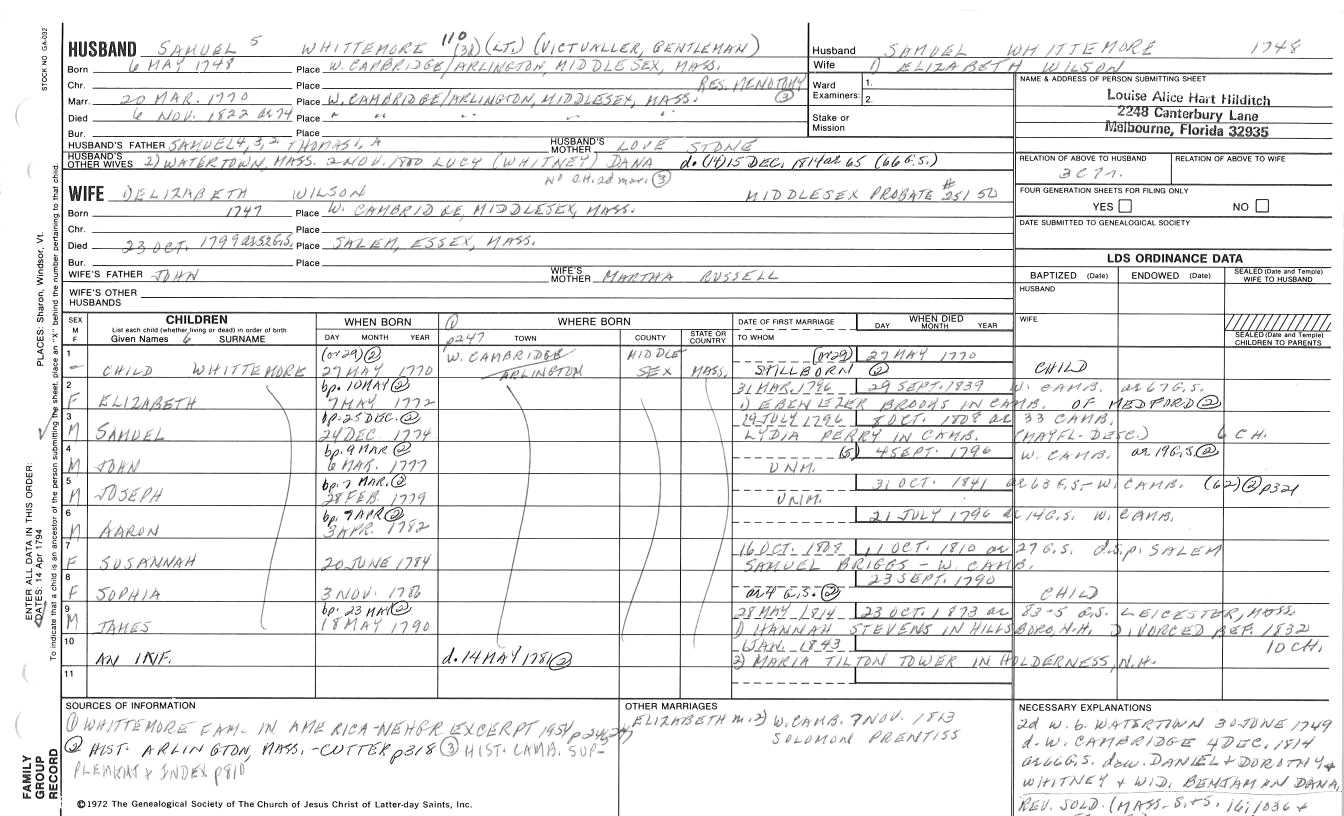 STOCK NO GA-002
HUSBAND SAMUEL 5 WHITTEMORE 110 (3d) (LT.) (VICTUALLER, GENTLEMAN)
Born 6 MAY 1748 Place W. CAMBRIDGE/ARLINGTON, MIDDLESEX, MASS.
Chr. Place RES. MENOTOMY ③
Marr. 20 MAR. 1770 Place W. CAMBRIDGE/ARLINGTON, MIDDLESEX, MASS.
Died 6 NOV. 1822 ae 74 Place " " " "
Bur. Place
HUSBAND'S FATHER SAMUEL 4, 3, 2, THOMAS 1, A HUSBAND'S MOTHER LOVE STONE
HUSBAND'S OTHER WIVES 2) WATERTOWN, MASS. 2 NOV. 1800 LUCY (WHITNEY) DANA d. (14) 15 DEC. 1814 ae 65 (66 G.S.)
NO CH. 2d mar. ③
WIFE 1) ELIZABETH WILSON MIDDLESEX PROBATE # 25150
Born 1747 Place W. CAMBRIDGE, MIDDLESEX, MASS.
Chr. Place
Died 23 OCT. 1799 ae 52 G.S. Place SALEM, ESSEX, MASS.
Bur. Place
WIFE'S FATHER JOHN WIFE'S MOTHER MARTHA RUSSELL
WIFE'S OTHER HUSBANDS
Husband SAMUEL WHITTEMORE 1748
Wife 1) ELIZABETH WILSON
Ward Examiners: 1. 2.
Stake or Mission
NAME & ADDRESS OF PERSON SUBMITTING SHEET
Louise Alice Hart Hilditch
2248 Canterbury Lane
Melbourne, Florida 32935
RELATION OF ABOVE TO HUSBAND RELATION OF ABOVE TO WIFE
3C7r.
FOUR GENERATION SHEETS FOR FILING ONLY
YES NO
DATE SUBMITTED TO GENEALOGICAL SOCIETY
LDS ORDINANCE DATA
BAPTIZED (Date) ENDOWED (Date) SEALED (Date and Temple) WIFE TO HUSBAND
HUSBAND
WIFE
SEALED (Date and Temple) CHILDREN TO PARENTS
SEX M F CHILDREN WHEN BORN ① WHERE BORN DATE OF FIRST MARRIAGE WHEN DIED
List each child (whether living or dead) in order of birth
Given Names 6 SURNAME DAY MONTH YEAR p247 TOWN COUNTY STATE OR COUNTRY TO WHOM DAY MONTH YEAR
1 (or 29) ② W. CAMBRIDGE MIDDLE (or 29) 27 MAY 1770
— CHILD WHITTEMORE 27 MAY 1770 ARLINGTON SEX MASS. STILLBORN ② CHILD
2 bp. 10 MAY ② 31 MAR. 1796 29 SEPT. 1839 W. CAMB. ae 67 G.S.
F ELIZABETH 7 MAY 1772 1) EBENEZER BROOKS IN CAMB. OF MEDFORD ②
3 bp. 25 DEC. ② 19 JULY 1796 8 OCT. 1808 ae 33 CAMB.
M SAMUEL 24 DEC 1774 LYDIA PERRY IN CAMB. (MAYFL. DESC.) 6 CH.
4 bp. 9 MAR ② (5) 4 SEPT. 1796 W. CAMB. ae 19 G.S. ②
M JOHN 6 MAR. 1777 UNM.
5 bp. 7 MAR. ② 31 OCT. 1841 ae 63 G.S.-W. CAMB. (62) ② p321
M JOSEPH 28 FEB. 1779 UNM.
6 bp. 7 APR ② 21 JULY 1796 ae 14 G.S. W. CAMB.
M AARON 3 APR. 1782
7 16 OCT. 1808 11 OCT. 1810 ae 27 G.S. d.s.p. SALEM
F SUSANNAH 20 JUNE 1784 SAMUEL BRIGGS - W. CAMB.
8 23 SEPT. 1790
F SOPHIA 3 NOV. 1786 ae 4 G.S. ② CHILD
9 bp. 23 MAY ② 28 MAY 1814 23 OCT. 1873 ae 83-5 G.S. LEICESTER, MASS.
M JAMES 18 MAY 1790 1) HANNAH STEVENS IN HILLSBORO, N.H. DIVORCED BEF. 1832
10 1 JAN. 1843 10 CH.
AN INF. d. 14 MAY 1781 ② 2) MARIA TILTON TOWER IN HOLDERNESS, N.H.
11
SOURCES OF INFORMATION
① WHITTEMORE FAM. IN AMERICA-NEHGR EXCERPT 1951 p246, 247
② HIST. ARLINGTON, MASS. -CUTTER p318 ③ HIST. CAMB. SUP-
PLEMENT & INDEX p810
OTHER MARRIAGES
ELIZABETH m. 2) W. CAMB. 7 NOV. 1813
SOLOMON PRENTISS
NECESSARY EXPLANATIONS
2d W. b. WATERTOWN 30 JUNE 1749
d. W. CAMBRIDGE 4 DEC. 1814
ae 66 G.S. dau. DANIEL & DOROTHY
WHITNEY & WID. BENJAMAN DANA,
REV. SOLD. (MASS. S. & S. 16; 1036 +
©1972 The Genealogical Society of The Church of Jesus Christ of Latter-day Saints, Inc.
FAMILY GROUP RECORD
ENTER ALL DATA IN THIS ORDER:
DATES: 14 Apr 1794 PLACES: Sharon, Windsor, Vt.
To indicate that a child is an ancestor of the person submitting the sheet, place an "X" behind the number pertaining to that child.